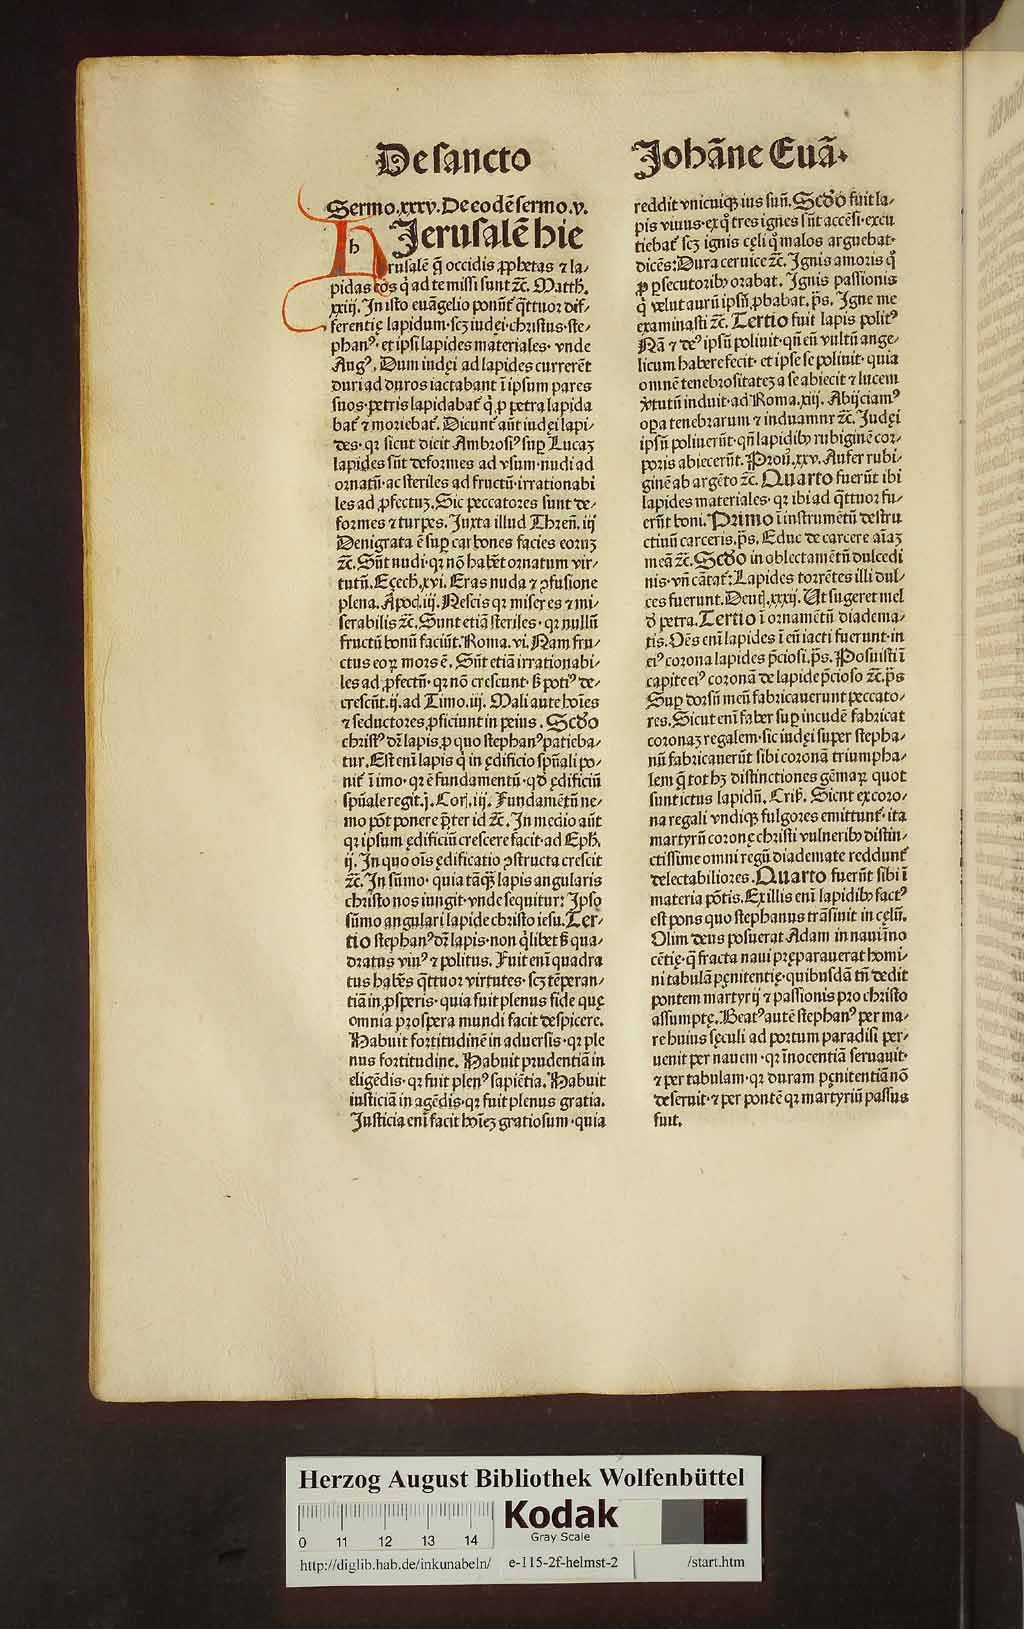 De sancto
Johãne Euã.
Sermo.xxxv. De eodẽ sermo.v.
h Jerusalẽ hie
rusalẽ q̃ occidis ꝓphetas ⁊ la-
pidas eos q̇ ad te missi sunt ⁊c̃. Matth.
xxiij. In isto euãgelio ponũt᷑ q̃ttuor dif-
ferentię lapidum·scꝫ iudęi·christus·ste-
phanꝰ· et ipsi lapides materiales· vnde
Augꝰ. Dum iudęi ad lapides currerẽt
duri ad duros iactabant ĩ ipsum pares
suos·petris lapidabat᷑ q̇ ꝓ petra lapida
bat᷑ ⁊ moriebat᷑. Dicunt᷑ aũt iudęi lapi-
des· qꝛ sicut dicit Ambrosiꝰ suꝑ Lucaꝫ
lapides sũt deformes ad vsum·nudi ad
ornatũ· ac steriles ad fructũ·irrationabi
les ad ꝓfectuꝫ. Sic peccatores sunt de-
formes ⁊ turpes. Juxta illud Thren̄. iiij
Denigrata ẽ suꝑ carbones facies eoruꝫ
⁊c̃. Sũt nudi·qꝛ nõ habẽt ornatum vir-
tutũ. Eȥech̃.xvi. Eras nuda ⁊ ꝯfusione
plena. Apoc̃.iij. Nescis qꝛ miser es ⁊ mi-
serabilis ⁊c̃. Sunt etiã steriles· qꝛ nullũ
fructũ bonũ faciũt. Roma. vi. Nam fru-
ctus eoꝝ mors ẽ. Sũt etiã irrationabi-
les ad ꝓfectũ· qꝛ nõ crescunt· sꝫ potiꝰ de-
crescũt.ij. ad Timo.iij. Mali aute hoĩes
⁊ seductores ꝓficiunt in peius. Scd̃o
christꝰ dr̃ lapis·ꝓ quo stephanꝰ patieba-
tur. Est enĩ lapis q̇ in ędificio spũali po-
nit᷑ ĩ imo· qꝛ ẽ fundamentũ· qd̃ ędificiũ
spũale regit.j. Cor̃.iij. Fundamẽtũ ne-
mo põt ponere p̃ter id ⁊c̃. In medio aũt
qꝛ ipsum ędificiũ crescere facit· ad Eph̃.
ij. In quo oĩs ędificatio ꝯstructa crescit
⁊c̃. In sũmo· quia tãq̃ꝫ lapis angularis
christo nos iungit·vnde sequitur: Ipso
sũmo angulari lapide christo iesu. Ter-
tio stephanꝰ dr̃ lapis·non q̇libet sꝫ qua-
dratus viuꝰ ⁊ politus. Fuit enĩ quadra
tus habẽs q̃ttuor virtutes· scꝫ tẽperan-
tiã in ꝓsperis· quia fuit plenus fide quę
omnia prospera mundi facit despicere.
Habuit fortitudinẽ in aduersis· qꝛ ple
nus fortitudine. Habuit prudentiã in
eligẽdis· qꝛ fuit plenꝰ sapiẽtia. Habuit
iusticiã in agẽdis· qꝛ fuit plenus gratia.
Justicia enĩ facit hoĩeꝫ gratiosum· quia
reddit vnicuiqꝫ ius suũ. Scd̃o fuit la-
pis viuus· ex q̊ tres ignes sũt accẽsi·excu
tiebat᷑ scꝫ ignis cęli q̊ malos arguebat·
dicẽs: Dura ceruice ⁊c̃. Ignis amoris q̊
ꝓ ꝑsecutoribꝰ orabat. Ignis passionis
q̇ velut aurũ ipsũ ꝓbabat. p̃s. Igne me
examinasti ⁊c̃. Tertio fuit lapis politꝰ
Nã ⁊ deꝰ ipsũ poliuit· qñ eiꝰ vultũ ange-
licum habere fecit· et ipse se poliuit· quia
omnẽ tenebrositateꝫ a se abiecit ⁊ lucem
ṽtutũ induit·ad Roma.xiij. Abijciamꝰ
oꝑa tenebrarum ⁊ induamur ⁊c̃. Judęi
ipsũ poliuerũt· qñ lapidibꝰ rubiginẽ cor-
poris abiecerũt. Prou̇.xxv. Aufer rubi-
ginẽ ab argẽto ⁊c̃. Quarto fuerũt ibi
lapides materiales· qꝛ ibi ad q̃ttuor fu-
erũt boni. Primo ĩ instrumẽtũ destru
ctiuũ carceris. p̃s. Educ de carcere aĩaꝫ
meã ⁊c̃. Scd̃o in oblectamẽtũ dulcedi
nis· vñ cãtat᷑: Lapides torrẽtes illi dul-
ces fuerunt. Deut̃.xxxij. Ut sugeret mel
d̊ petra. Tertio ĩ ornamẽtũ diadema-
tis. Oẽs enĩ lapides ĩ eũ iacti fuerunt·in
eiꝰ corona lapides p̃ciosi. p̃s. Posuisti ĩ
capite eiꝰ coronã de lapide p̃cioso ⁊c̃. p̃s
Suꝑ dorsũ meũ fabricauerunt peccato-
res. Sicut enĩ faber suꝑ incudẽ fabricat
coronaꝫ regalem· sic iudęi super stepha-
nũ fabricauerũt sibi coronã triumpha-
lem q̃ tot hꝫ distinctiones gẽmaꝝ quot
sunt ictus lapidũ. Criß. Sicut ex coro-
na regali vndiqꝫ fulgores emittunt᷑· ita
martyrũ coronę christi vulneribꝰ distin-
ctissime omni regũ diademate reddunt᷑
delectabiliores. Quarto fuerũt sibi ĩ
materia põtis. Ex illis enĩ lapidibꝰ factꝰ
est pons quo stephanus trãsiuit in cęlũ.
Olim deus posuerat Adam in naui ĩno
cẽtię· q̃ fracta naui pręparauerat homi-
ni tabulã pęnitentię· quibusdã tñ dedit
pontem martyrij ⁊ passionis pro christo
assumptę. Beatꝰ autẽ stephanꝰ per ma-
re huius sęculi ad portum paradisi per-
uenit per nauem· qꝛ ĩnocentiã seruauit·
⁊ per tabulam· qꝛ duram pęnitentiã nõ
deseruit· ⁊ per pontẽ qꝛ martyriũ passus
fuit.
Herzog August Bibliothek Wolfenbüttel
Kodak
Gray Scale
0 11 12 13 14
http://diglib.hab.de/inkunabeln/ e-115-2f-helmst-2 /start.htm